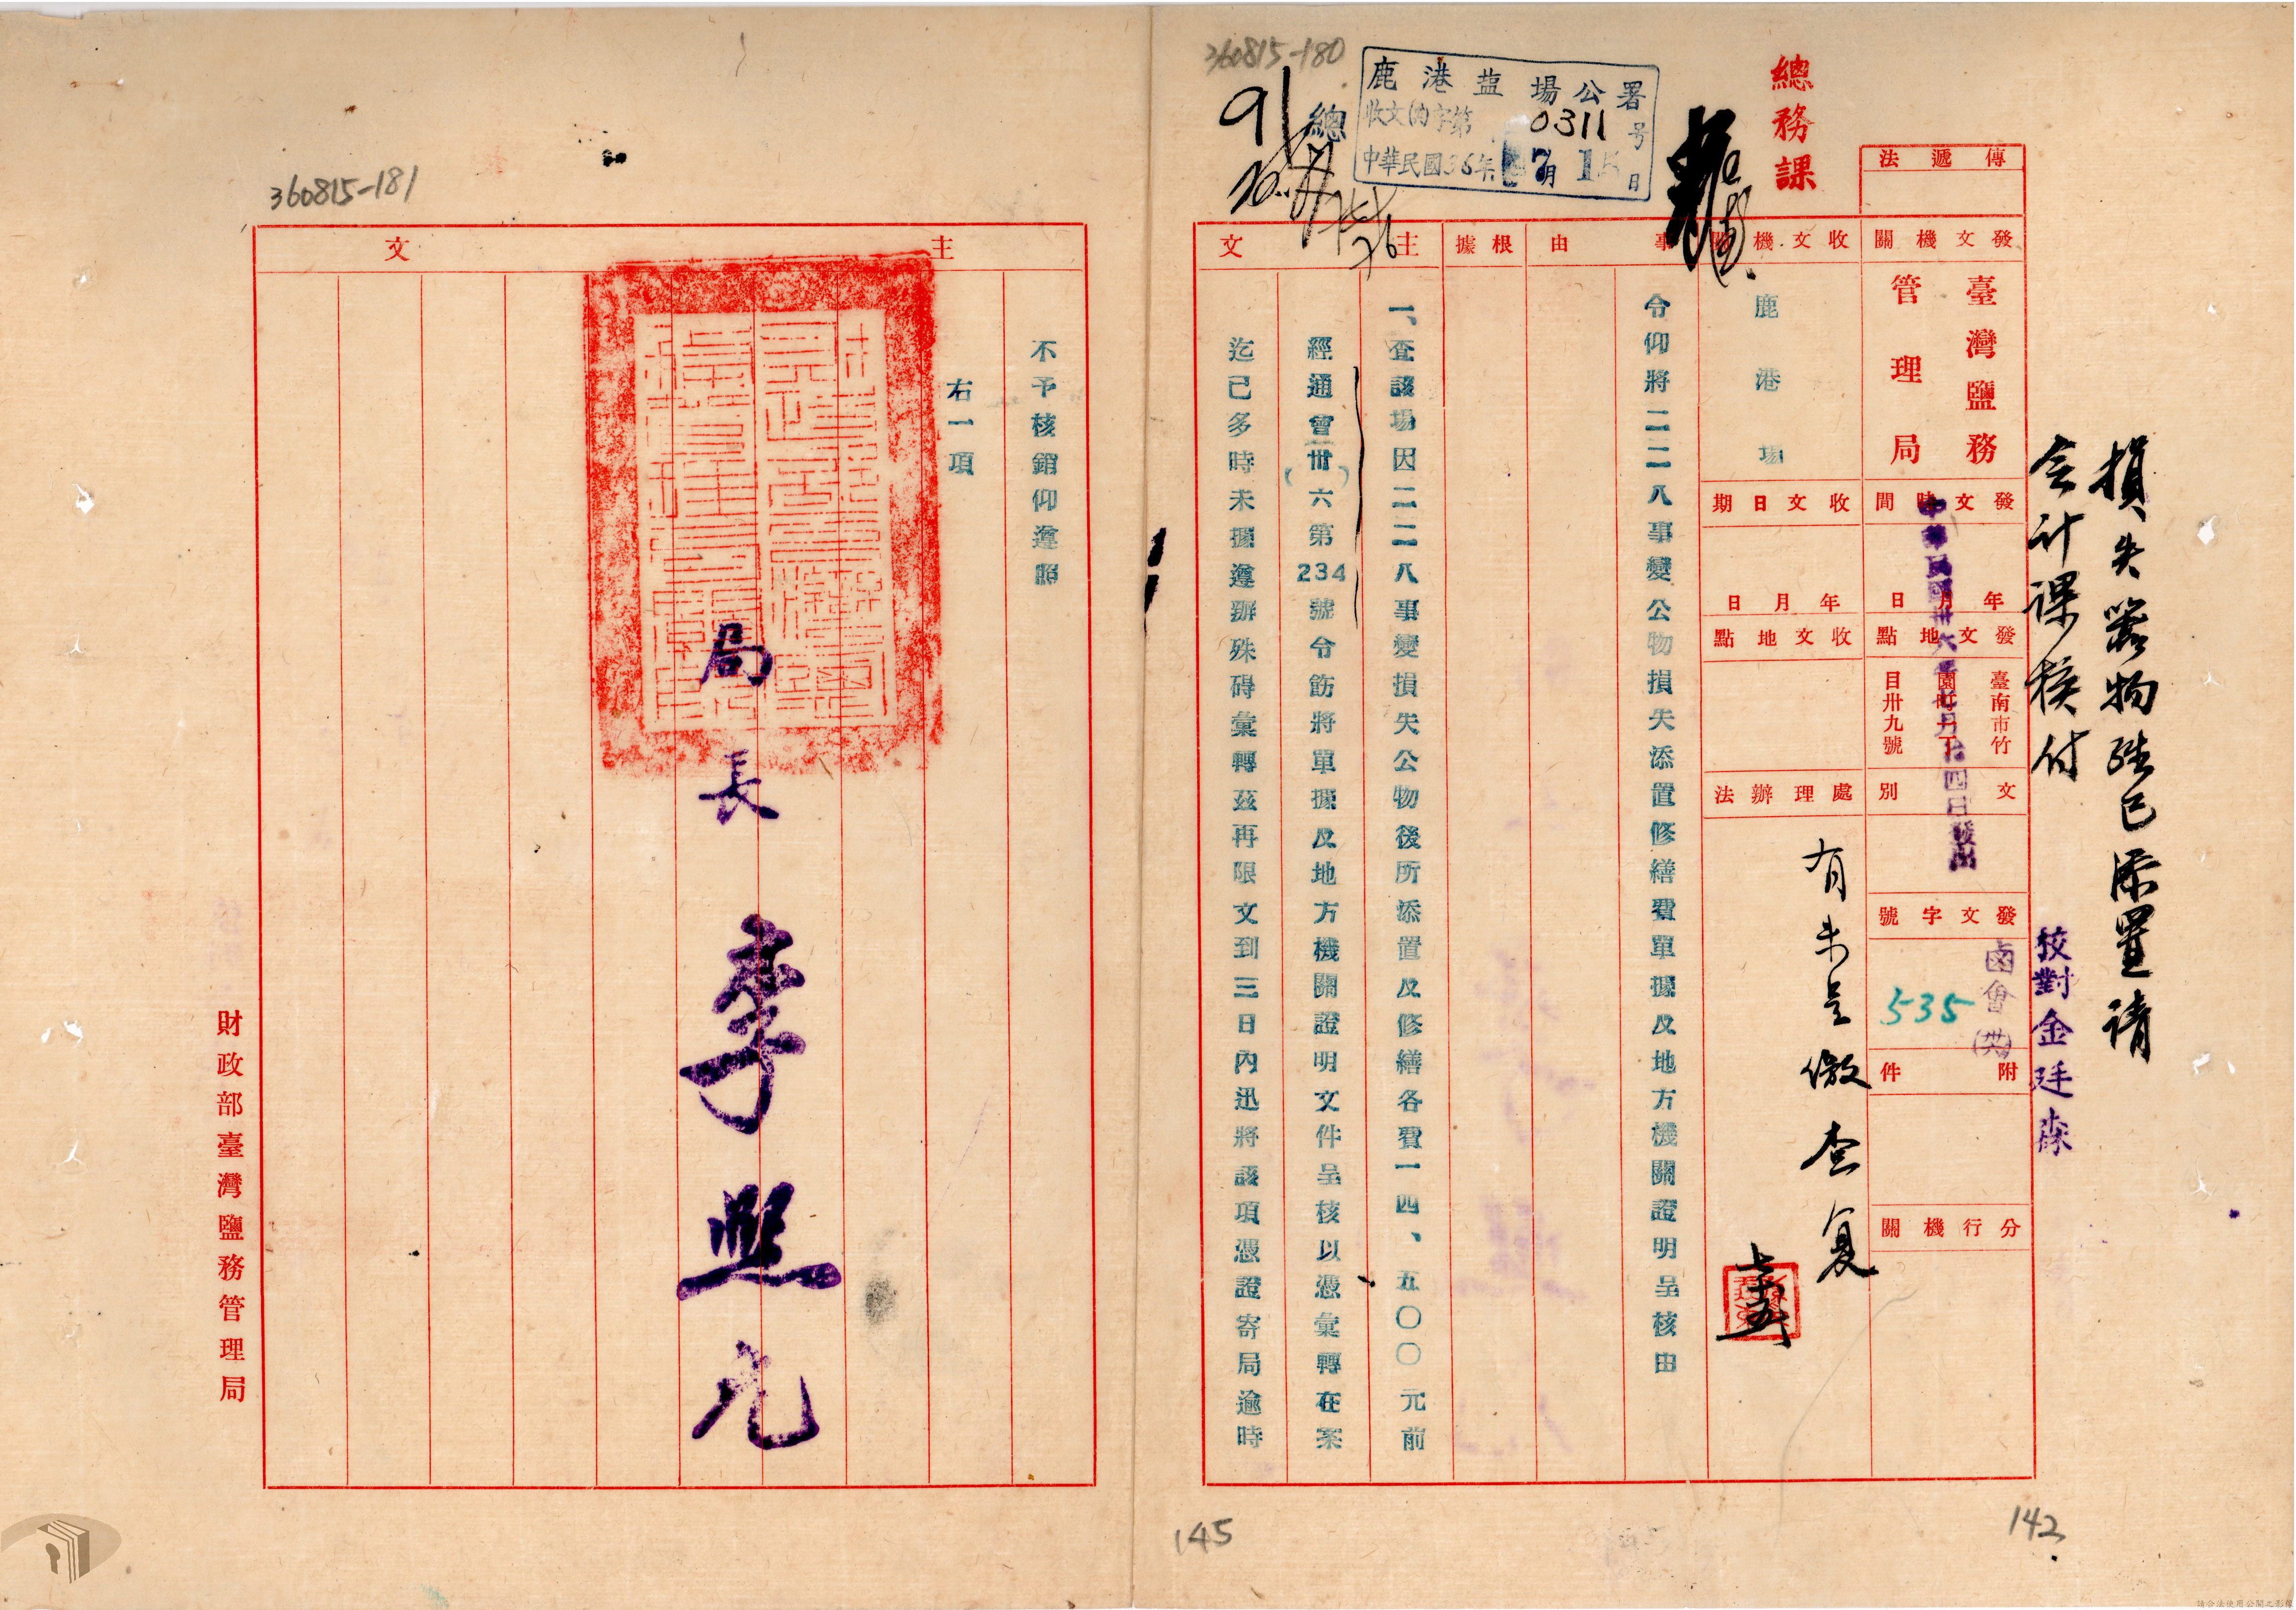 360815-180
91
總
鹿港盐場公署
收文(內)字第0311号
中華民國36年7月15日
總務課
傳遞法
損失器物經已添置請
会計課核付
校對金廷森
發文機關
臺灣鹽務
管理局
發文時間
年月日
中華民國卅六年七月拾四日發出
發文地點
臺南市竹
園町一丁
目卅九號
文別
發文字號
鹵會(卅)
535
附件
分行機關
收文機關
鹿港場
收文日期
年月日
收文地點
處理辦法
有未呈繳查复
七五
事由
令仰將二二八事變公物損失添置修繕費單據及地方機關證明呈核由
根據
主文
一、查該場因二二八事變損失公物後所添置及修繕各費一四、五〇〇元前
經通會(卅)六第234號令飭將單據及地方機關證明文件呈核以憑彙轉在案
迄已多時未據遵辦殊碍彙轉茲再限文到三日內迅將該項憑證寄局逾時
145
142
360815-181
主文
不予核銷仰遵照
右一項
局長李熙元
財政部臺灣鹽務管理局
請合法使用公開之影像